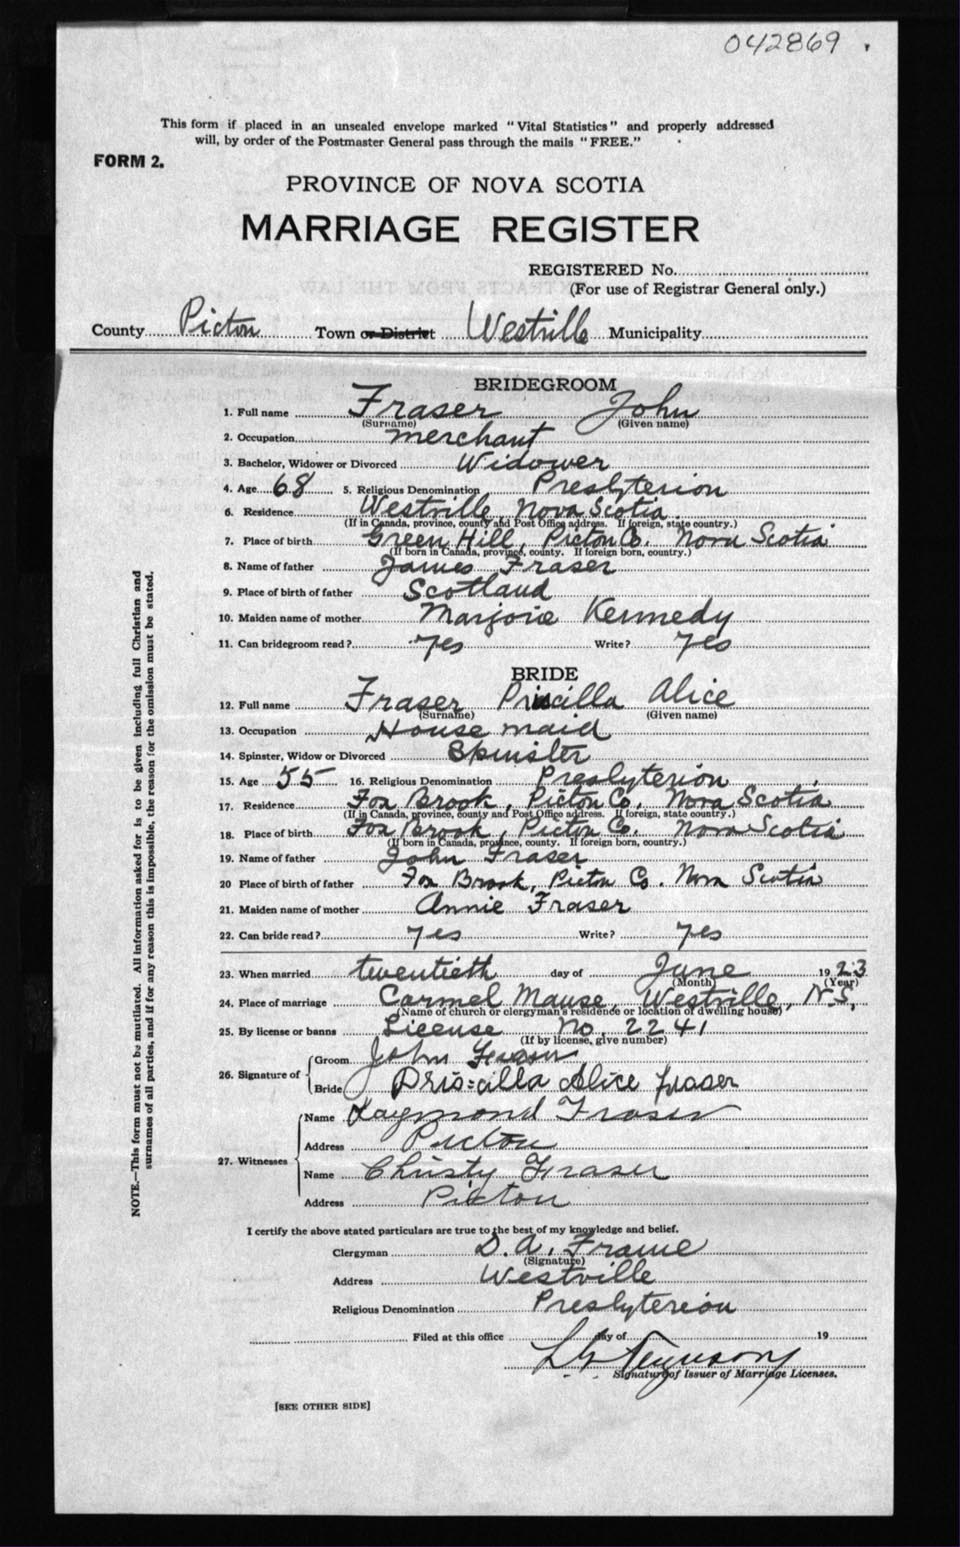 042869
This form if placed in an unsealed envelope marked "Vital Statistics" and properly addressed
will, by order of the Postmaster General pass through the mails "FREE."
FORM 2.
PROVINCE OF NOVA SCOTIA
MARRIAGE REGISTER
REGISTERED No.
(For use of Registrar General only.)
County Picton Town or District Westville Municipality
BRIDEGROOM
1. Full name Fraser John
(Surname) (Given name)
2. Occupation merchant
3. Bachelor, Widower or Divorced Widower
4. Age 68 5. Religious Denomination Presbyterion
6. Residence Westville, Nova Scotia
(If in Canada, province, county and Post Office address. If foreign, state country.)
7. Place of birth Green Hill, Picton Co. Nova Scotia
(If born in Canada, province, county. If foreign born, country.)
8. Name of father James Fraser
9. Place of birth of father Scotland
10. Maiden name of mother Marjorie Kennedy
11. Can bridegroom read? yes Write? yes
BRIDE
12. Full name Fraser Priscilla Alice
(Surname) (Given name)
13. Occupation House maid
14. Spinster, Widow or Divorced Spinster
15. Age 55 16. Religious Denomination Presbyterion
17. Residence Fox Brook, Picton Co, Nova Scotia
(If in Canada, province, county and Post Office address. If foreign, state country.)
18. Place of birth Fox Brook, Picton Co. Nova Scotia
(If born in Canada, province, county. If foreign born, country.)
19. Name of father John Fraser
20 Place of birth of father Fox Brook, Picton Co. Nova Scotia
21. Maiden name of mother Annie Fraser
22. Can bride read? yes Write? yes
23. When married twentieth day of June 1923
(Month) (Year)
24. Place of marriage Carmel Manse, Westville, N.S.
(Name of church or clergyman's residence or location of dwelling house)
25. By license or banns License No. 2241
(If by license, give number)
26. Signature of Groom John Fraser
Bride Pris=cilla Alice fraser
27. Witnesses Name Raymond Fraser
Address Picton
Name Christy Fraser
Address Picton
I certify the above stated particulars are true to the best of my knowledge and belief.
Clergyman D. A. Frame
(Signature)
Address Westville
Religious Denomination Presbyterion
Filed at this office day of 19
Ferguson
Signature of Issuer of Marriage Licenses.
[SEE OTHER SIDE]
NOTE.—This form must not be mutilated. All information asked for is to be given including full Christian and
surnames of all parties, and if for any reason this is impossible, the reason for the omission must be stated.